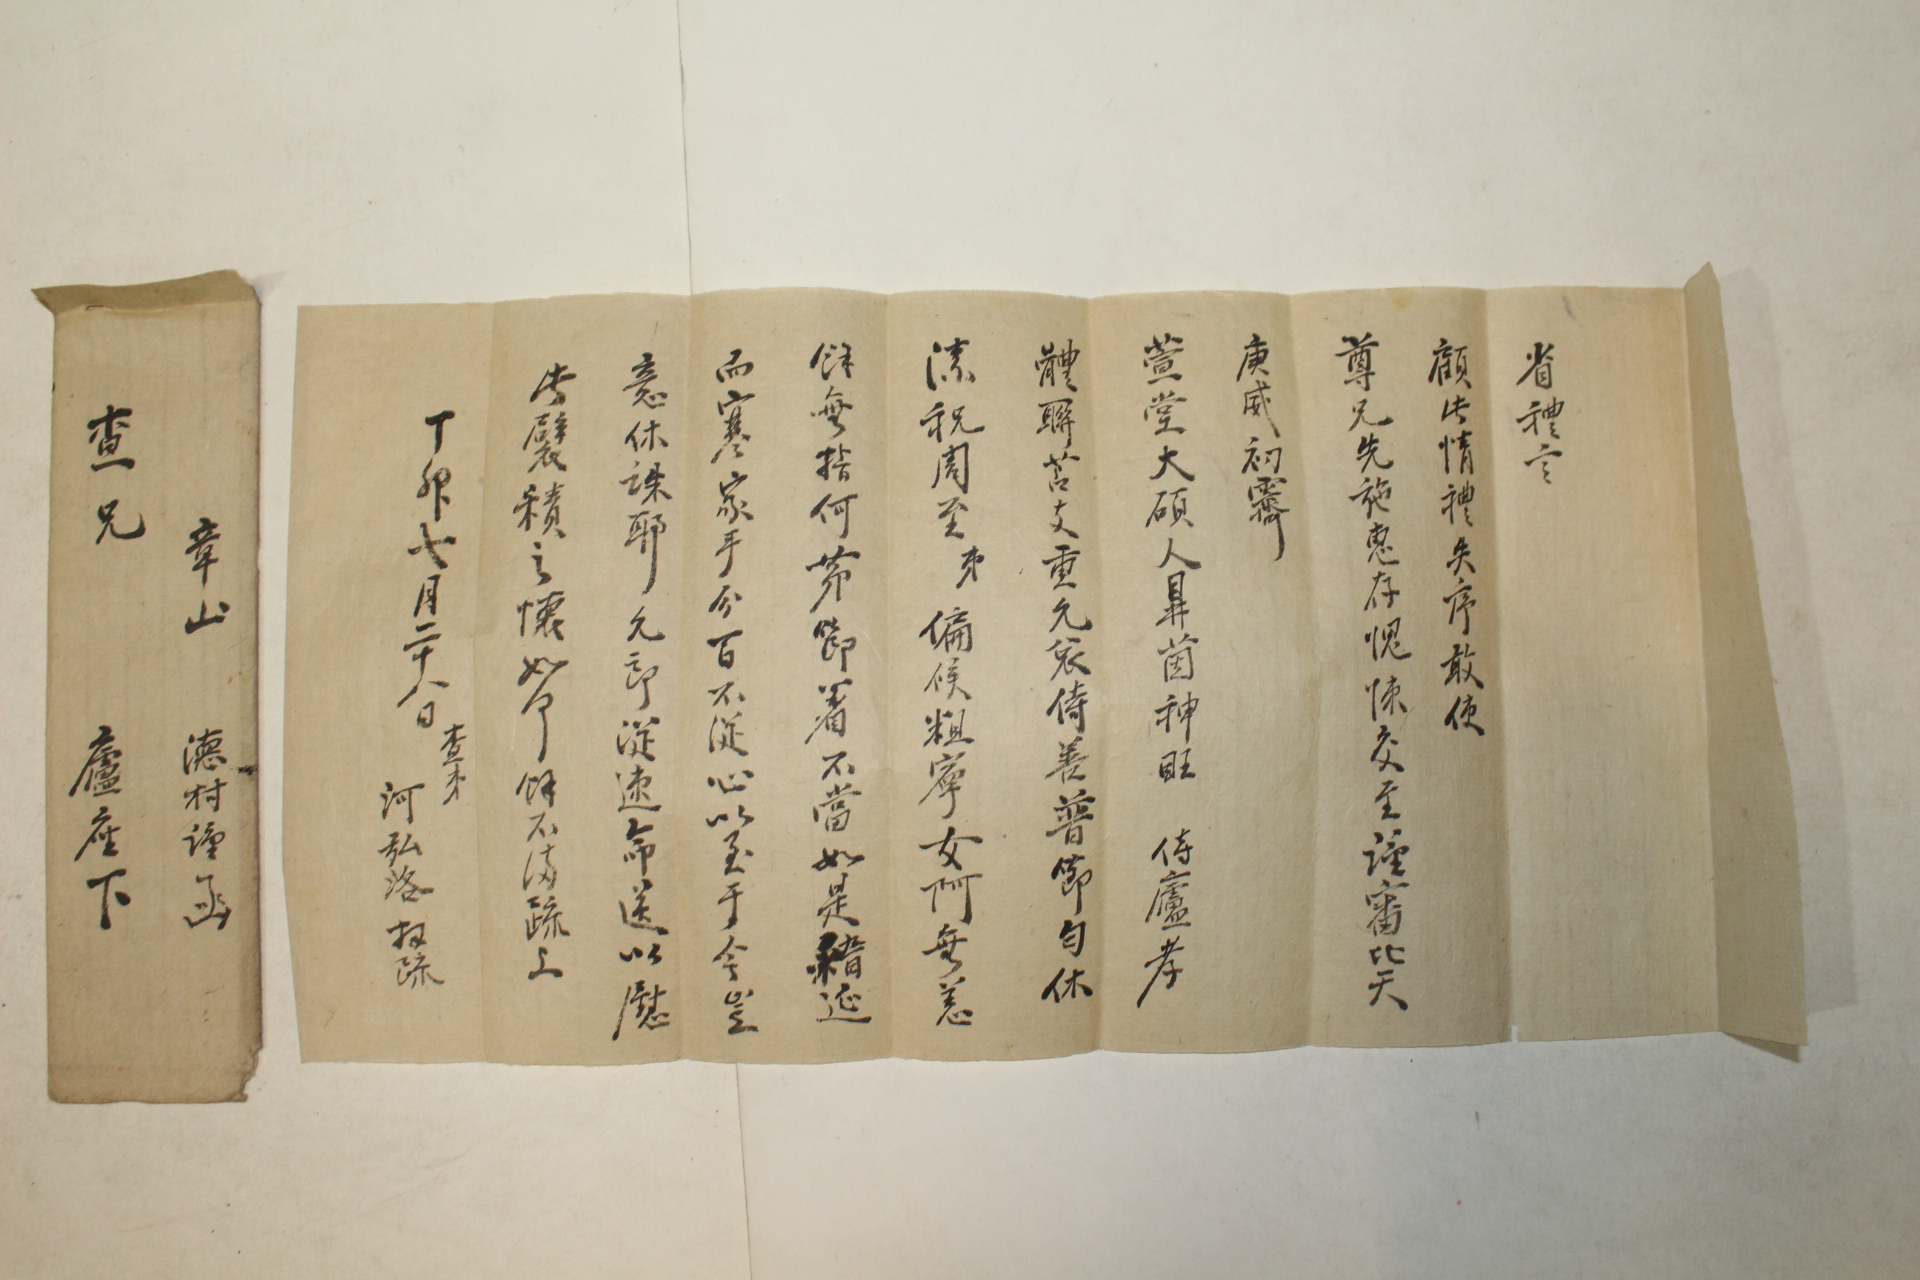 省禮言
顧此情禮失序敢使
尊兄先施惠存愧悚交至謹審比天
庚威初霽
萱堂大碩人鼻茵神旺 侍廬孝
體聯苫支重允哀侍善普節匀休
溱祝周至弟偏候粗寧女阿無恙
餘無指何第節著不當如是稽延
而寒家手分百不從心以至于今豈
意休誅耶允郎從速命送以慰
此襞積之懷如何餘不備疏上
丁卯七月二十八日
查弟
河弘洛拜疏
章山 德村謹函
查兄 廬座下